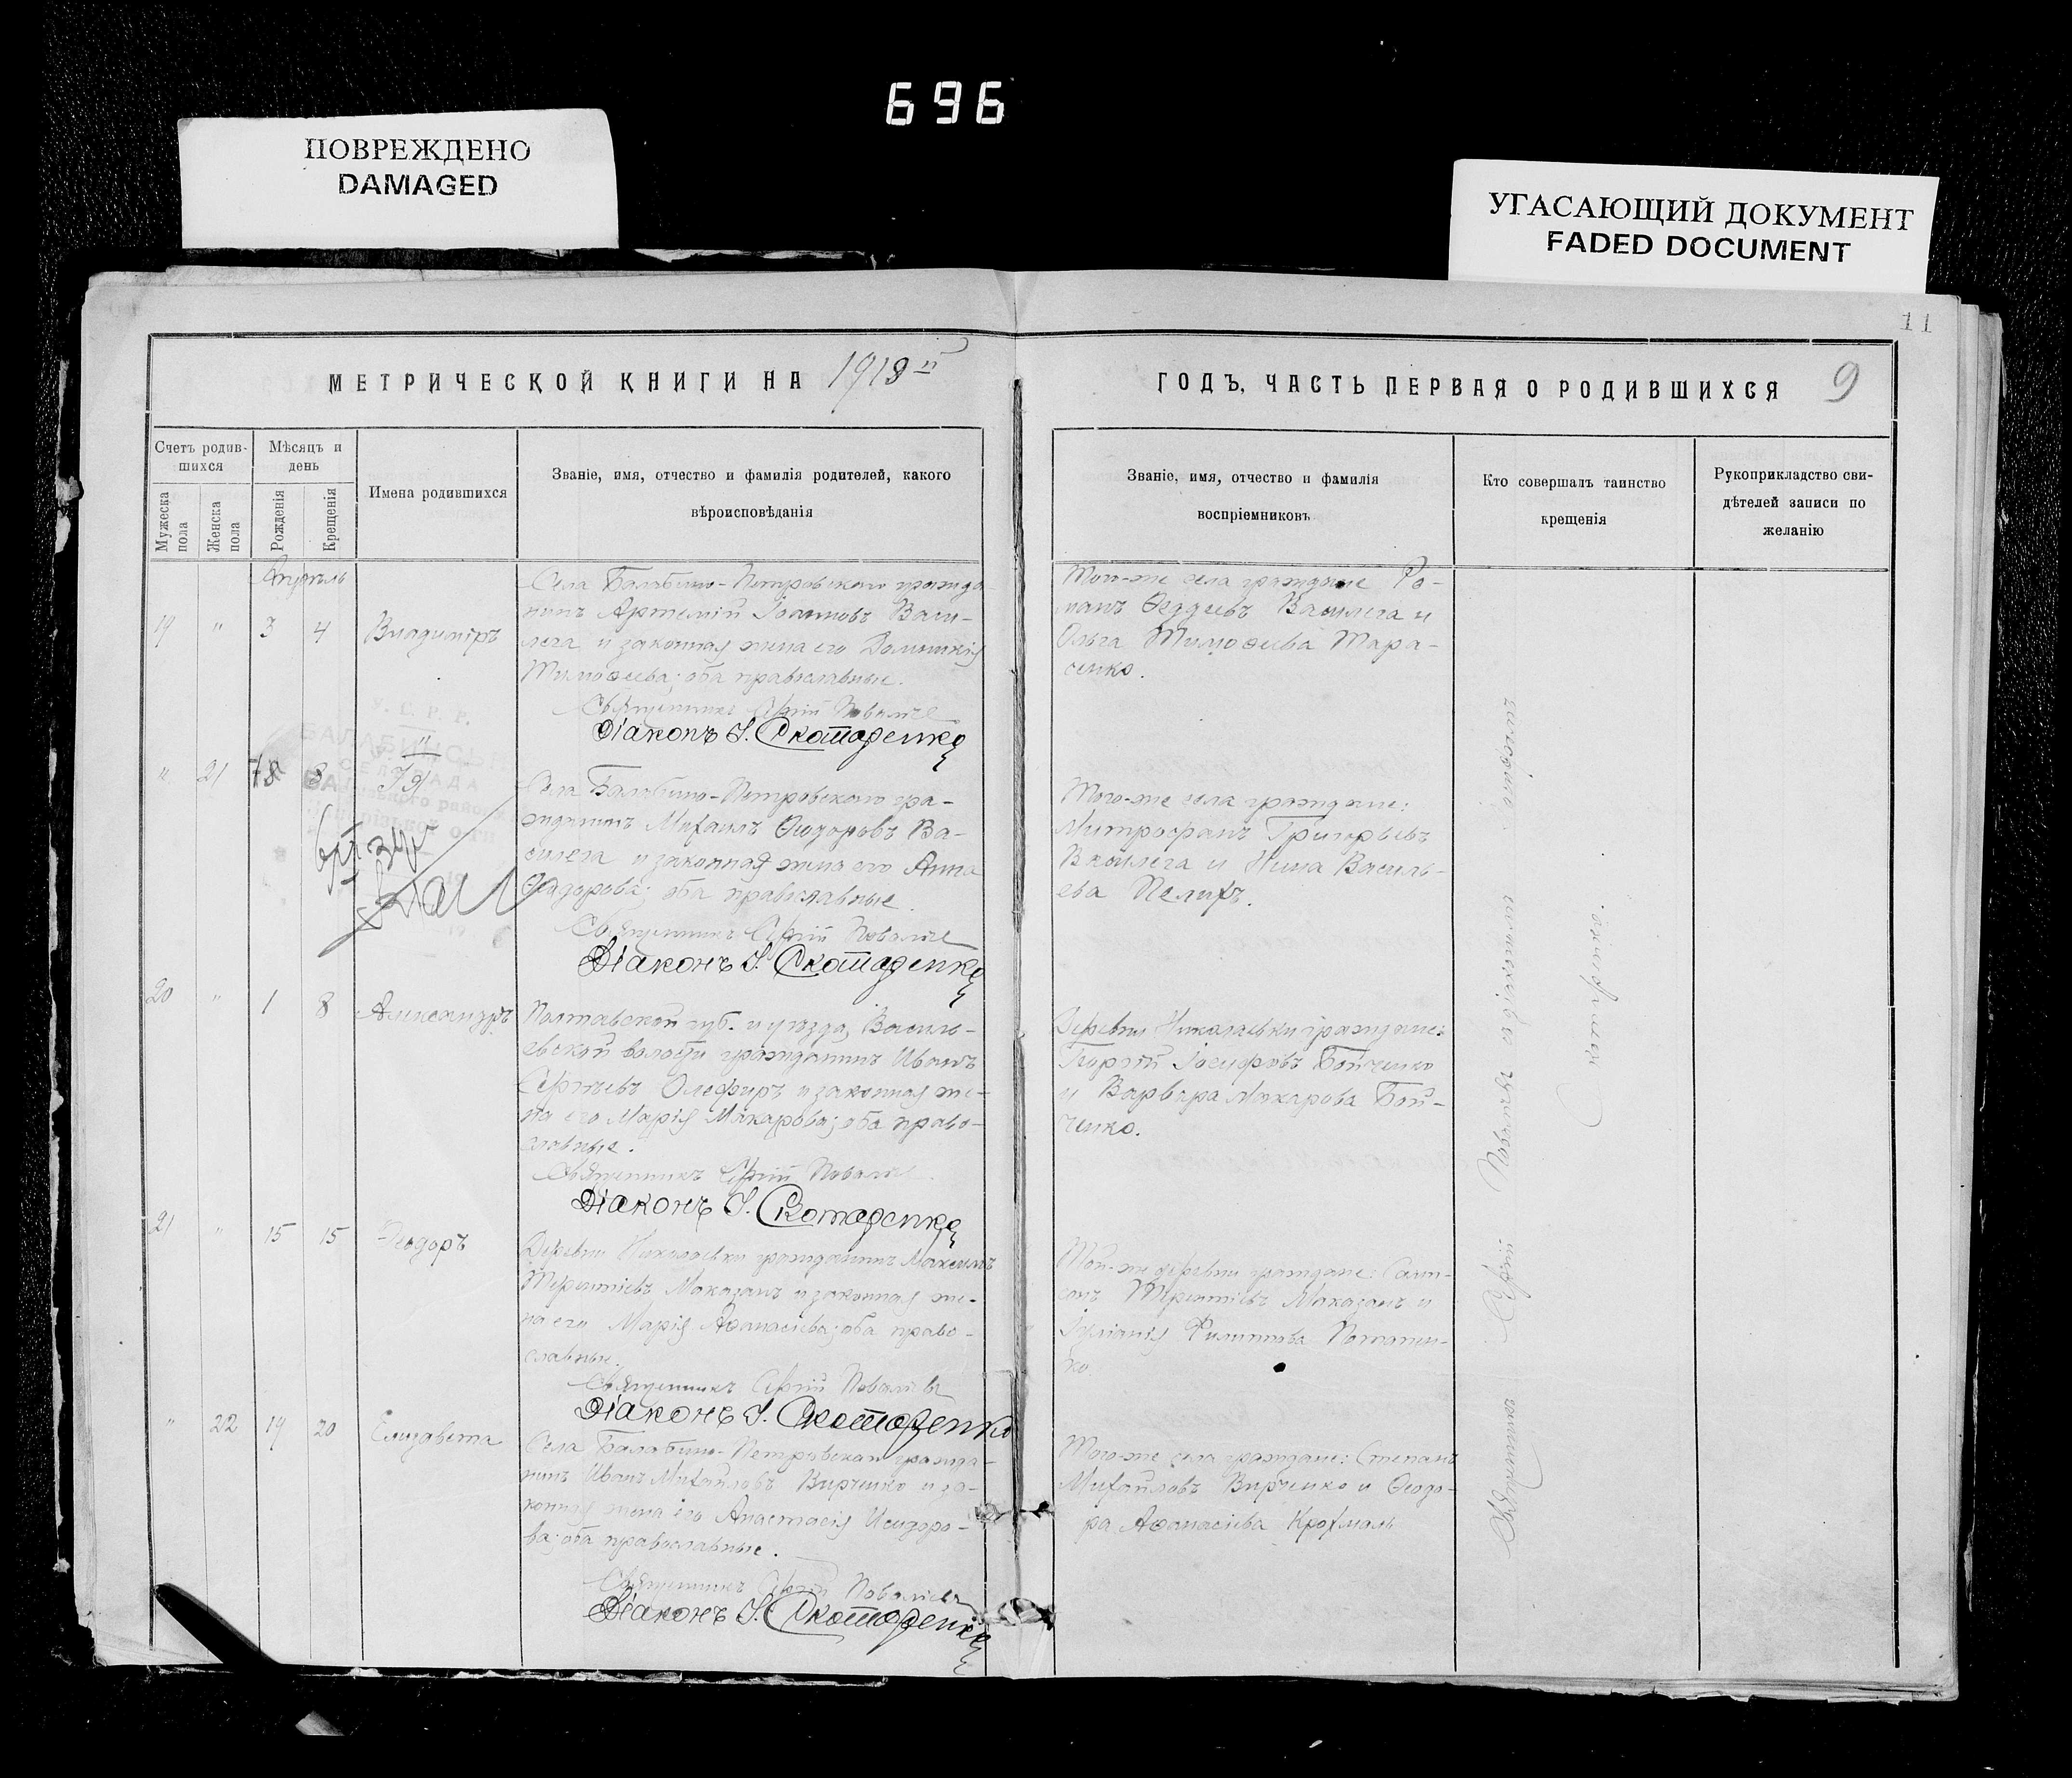 696
ПОВРЕЖДЕНО
DAMAGED
УГАСАЮЩИЙ ДОКУМЕНТ
FADED DOCUMENT
11
МЕТРИЧЕСКОЙ КНИГИ НА 1918 й
ГОДЪ, ЧАСТЬ ПЕРВАЯ О РОДИВШИХСЯ
9
Счетъ родив-
шихся
Мужеска
пола
Женска
пола
Мѣсяцъ и
день
Рожденія
Крещенія
Имена родившихся
Званіе, имя, отчество и фамилія родителей, какого
вѣроисповѣданія
Званіе, имя, отчество и фамилія
воспріемниковъ
Кто совершалъ таинство
крещенія
Рукоприкладство сви-
дѣтелей записи по
желанію
Апрѣль
19 " 3 4 Владиміръ
Села Балабино-Петровскаго гражда-
нинъ Артемій Іоанновъ Васи-
лега и законная жена его
Тимоѳеева; оба православные.
Священникъ Сергій
Діаконъ І. Скотаренко
Того-же села граждане Ро-
манъ Ѳаддеевъ Василега и
Ольга Тимоѳеева Тара-
сенко.
" 21
У. С. Р. Р.
БАЛАБИНСЬ
СЕЛ РАДА
Села Балабино-Петровскаго гра-
жданинъ Михаилъ Ѳеодоровъ Ва-
силега и законная жена его Анна
Ѳеодорова; оба православные.
Священникъ Сергій
Діаконъ І. Скотаренко
Того-же села граждане:
Митрофанъ Григорьевъ
Василега и Нина Василь-
ева Пелихъ.
20 " 1 8 Александръ
Полтавской губ. и уѣзда, Василь-
евской волости гражданинъ Иванъ
Сергѣевъ Олефиръ и законная же-
на его Марія Макарова; оба право-
славные.
Священникъ Сергій
Діаконъ І. Скотаренко
Деревни Николаевки граждане:
Георгій Іосифовъ Бойченко
и Варвара Макарова Бой-
ченко.
21 " 15 15 Ѳеодоръ
Деревни Николаевки гражданинъ Максимъ
Терентіевъ Маказанъ и законная же-
на его Марія Аѳанасіева; оба право-
славные.
Священникъ Сергій
Діаконъ І. Скотаренко
Той-же деревни граждане:
Терентіевъ Маказанъ и
Іуліанія Филиппова
ко
" 22 19 20 Елизавета
Села Балабино-Петровскаго гражда-
нинъ Иванъ Михайловъ Вирченко и за-
конная жена его Анастасія Исидоро-
ва; оба православные.
Священникъ Сергій
Діаконъ І. Скотаренко
Того-же села граждане: Степанъ
Михайловъ Вирченко и Ѳеодо-
ра Аѳанасіева Крохмаль
Священникъ Сергій